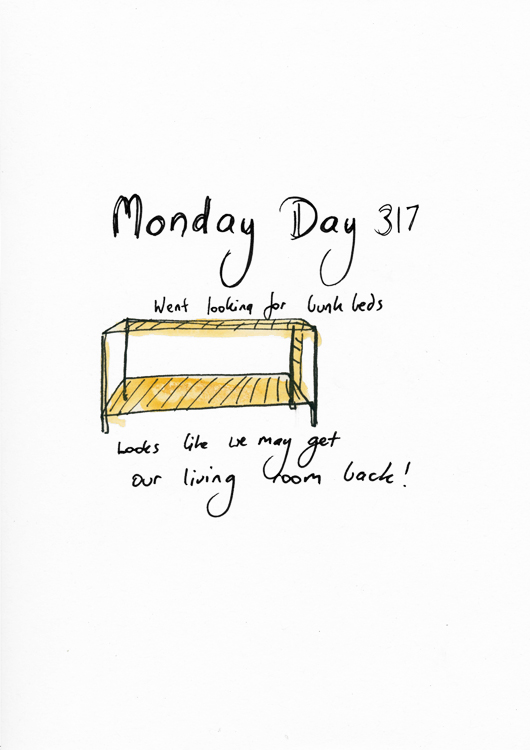 Monday Day 317
Went looking for bunk beds
Looks like we may get
our living room back!